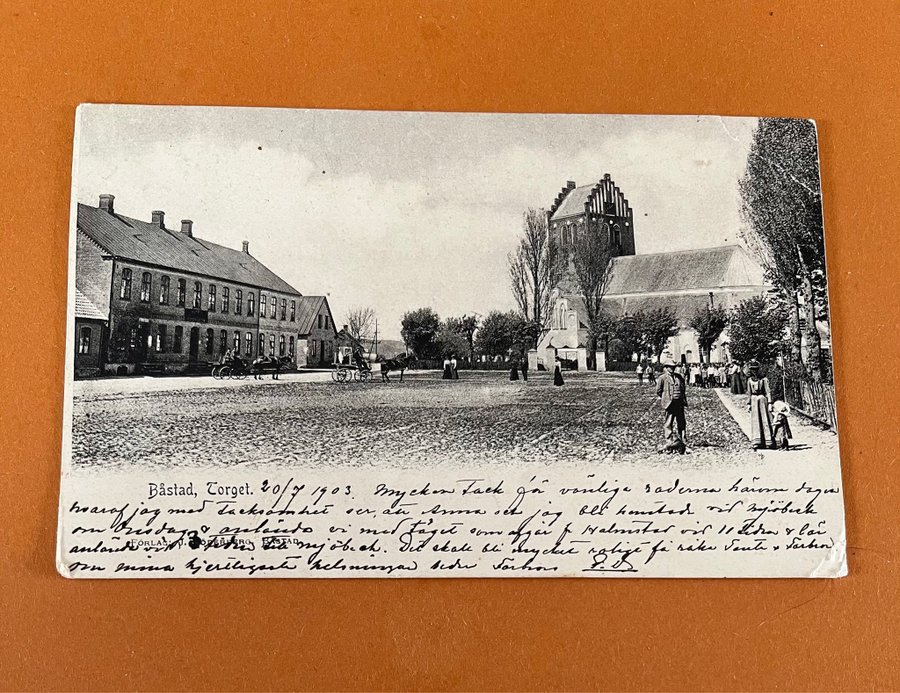 Båstad, Torget. 20/7 1903. Mycken Tack för vänliga raderna härom dagen
hvaraf jag med tacksamhet ser, att Anna och jag bli hemtade vid Mjöbeck
om Onsdag & anlända vi med tåget som afgår fr Halmstad vid 11 tiden & lär
anlända vid 3 tiden till Mjöbeck. Det skall bli mycket roligt få råka Tante & Farbror
FÖRLAG: BÅSTAD.
om emma hjertligaste helsningar Farbror